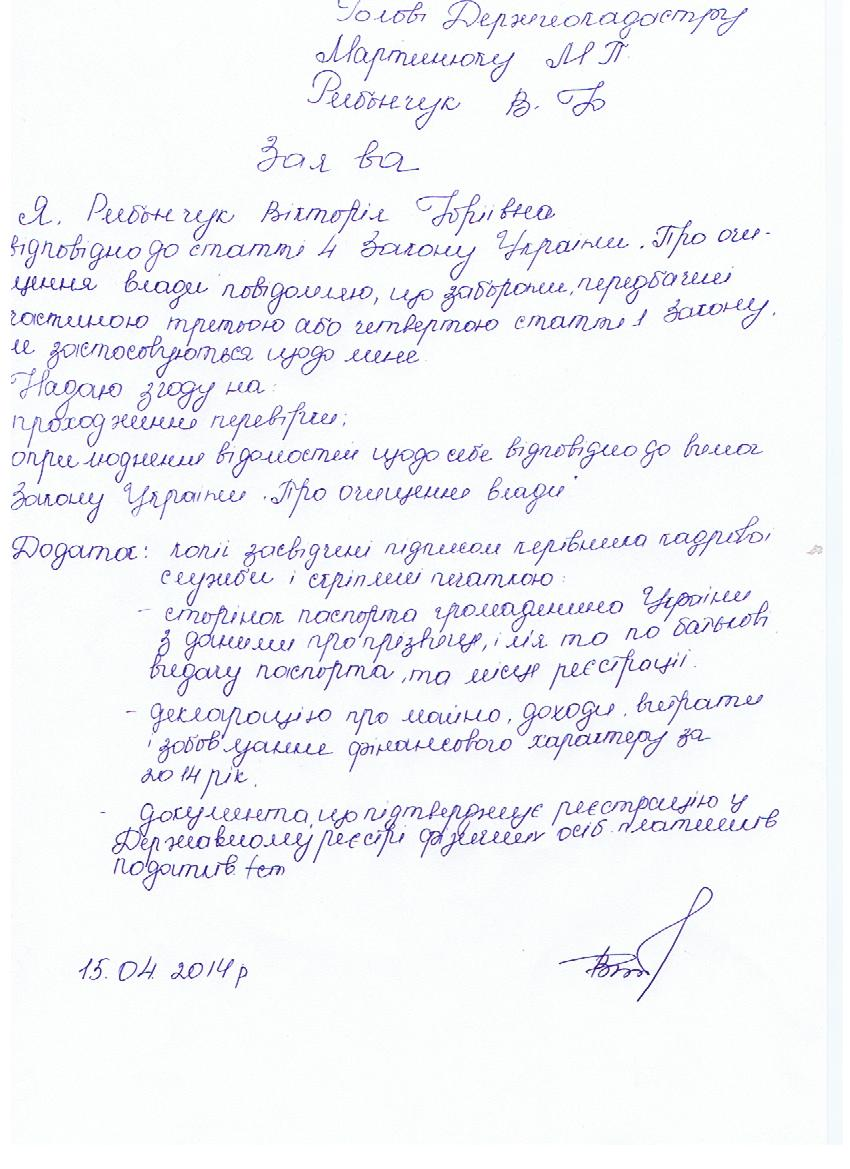 Голові Держгеокадастру
Мартинюку М П.
Рибончук В. Ю
Заява
Я. Рибончук Вікторія Юріївна
відповідно до статті 4 Закону України. Про очи-
щення влади повідомляю, що заборони, передбачені
частиною третьою або четвертою статті 1 Закону,
не застосовуються щодо мене.
Надаю згоду на:
проходження перевірки;
оприлюднення відомостей щодо себе відповідно до вимог
Закону України. Про очищення влади"
Додатки: копії засвідчені підписом керівника кадрової
служби і скріплені печаткою:
- сторінок паспорта громадянина України
з даними про прізвище, і м'я та по батькові
видачу паспорта, та місце реєстрації.
- декларацію про майно, доходи, витрати
і зобов'язання фінансового характеру за
2014 рік.
- документа, що підтверджує реєстрацію у
Державному реєстрі фізичних осіб платників
податків. 1ст
15.04. 2014 р